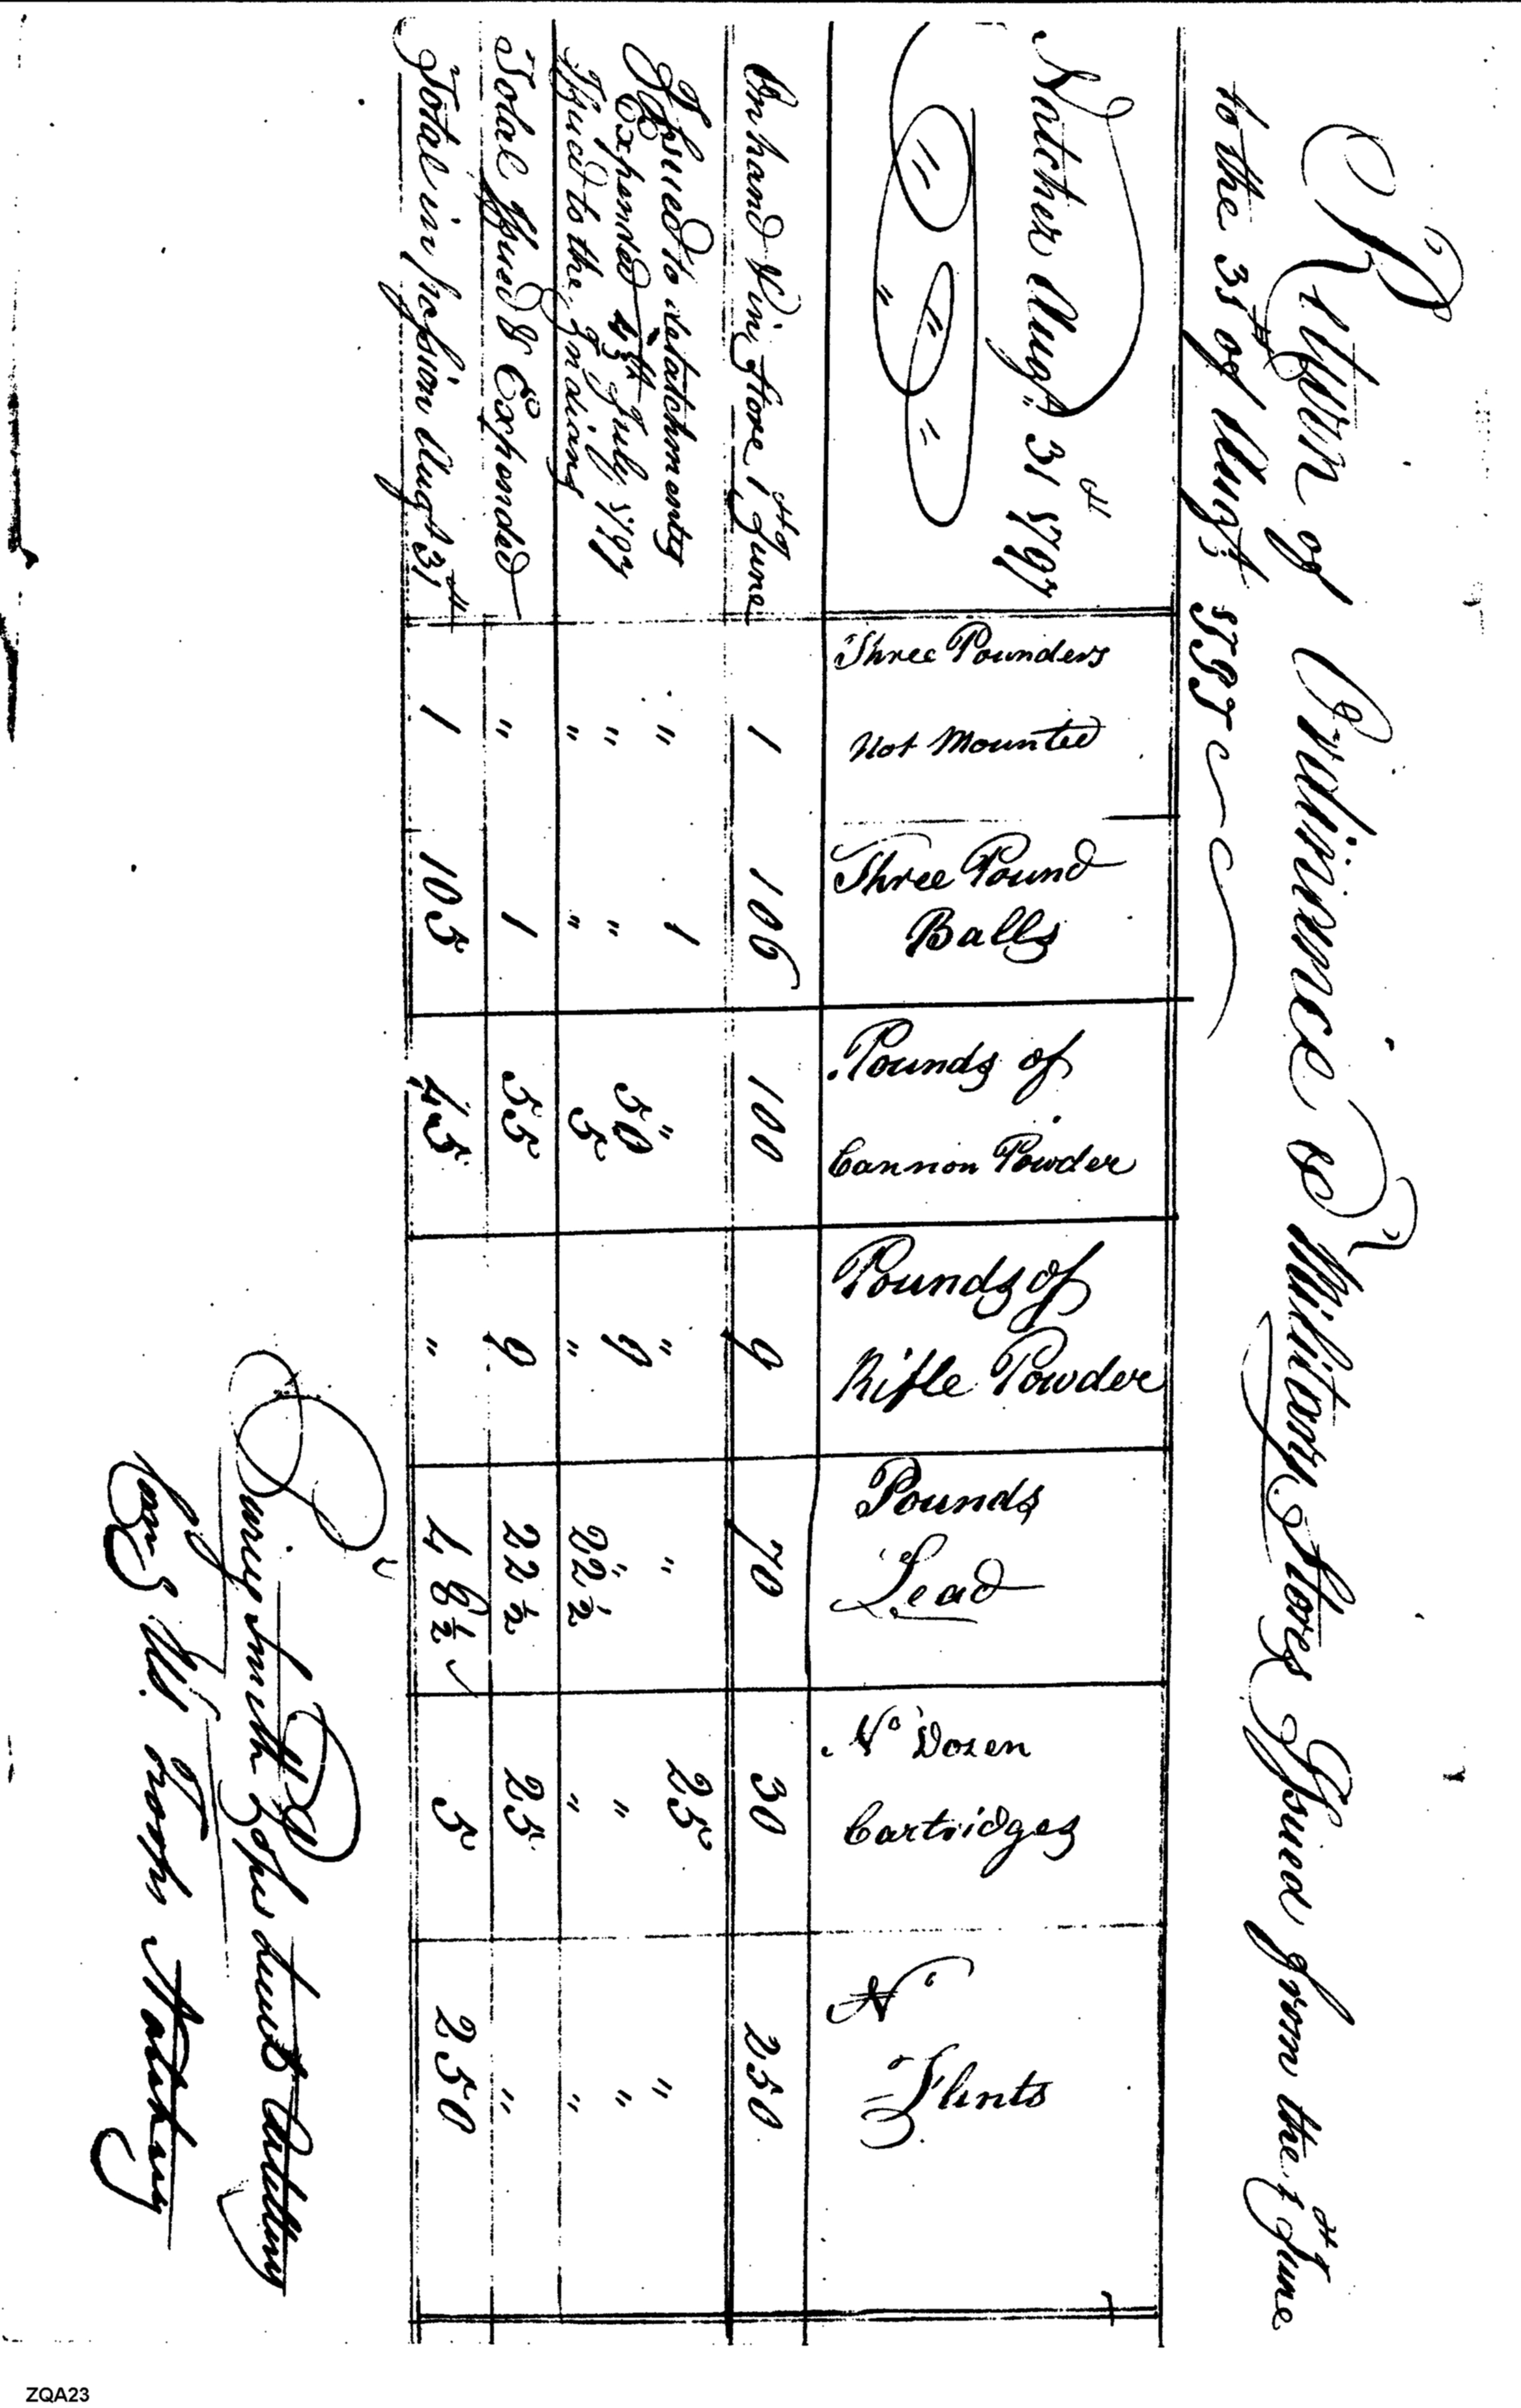 Return of Ordinince & Military Stores Issued from the 1st June
to the 31st of Augst 1797
Natchez Augt 31st 1797
Three Pounders
Not Mounted
Three Pound
Balls
Pounds of
Cannon Powder
Pounds of
Rifle Powder
Pounds
Lead
No Dozen
Cartridges
No
Flints
On hand & in Store 1st June 1 106 100 9 70 30 250
Issued to detatchments " 1 " " " 25 "
Expended 4th July 1797 " " 50 9 " " "
Issued to the Indians " " 5 " 22 1/2 " "
Total Issued & Expended " 1 55 9 22 1/2 25 "
Total in possion Augt 31st 1 105 45 " 48 1/2 5 250
Piercy Smith Pope Lieut Artillery
Comg U.S. Troops Natchez
ZQA23